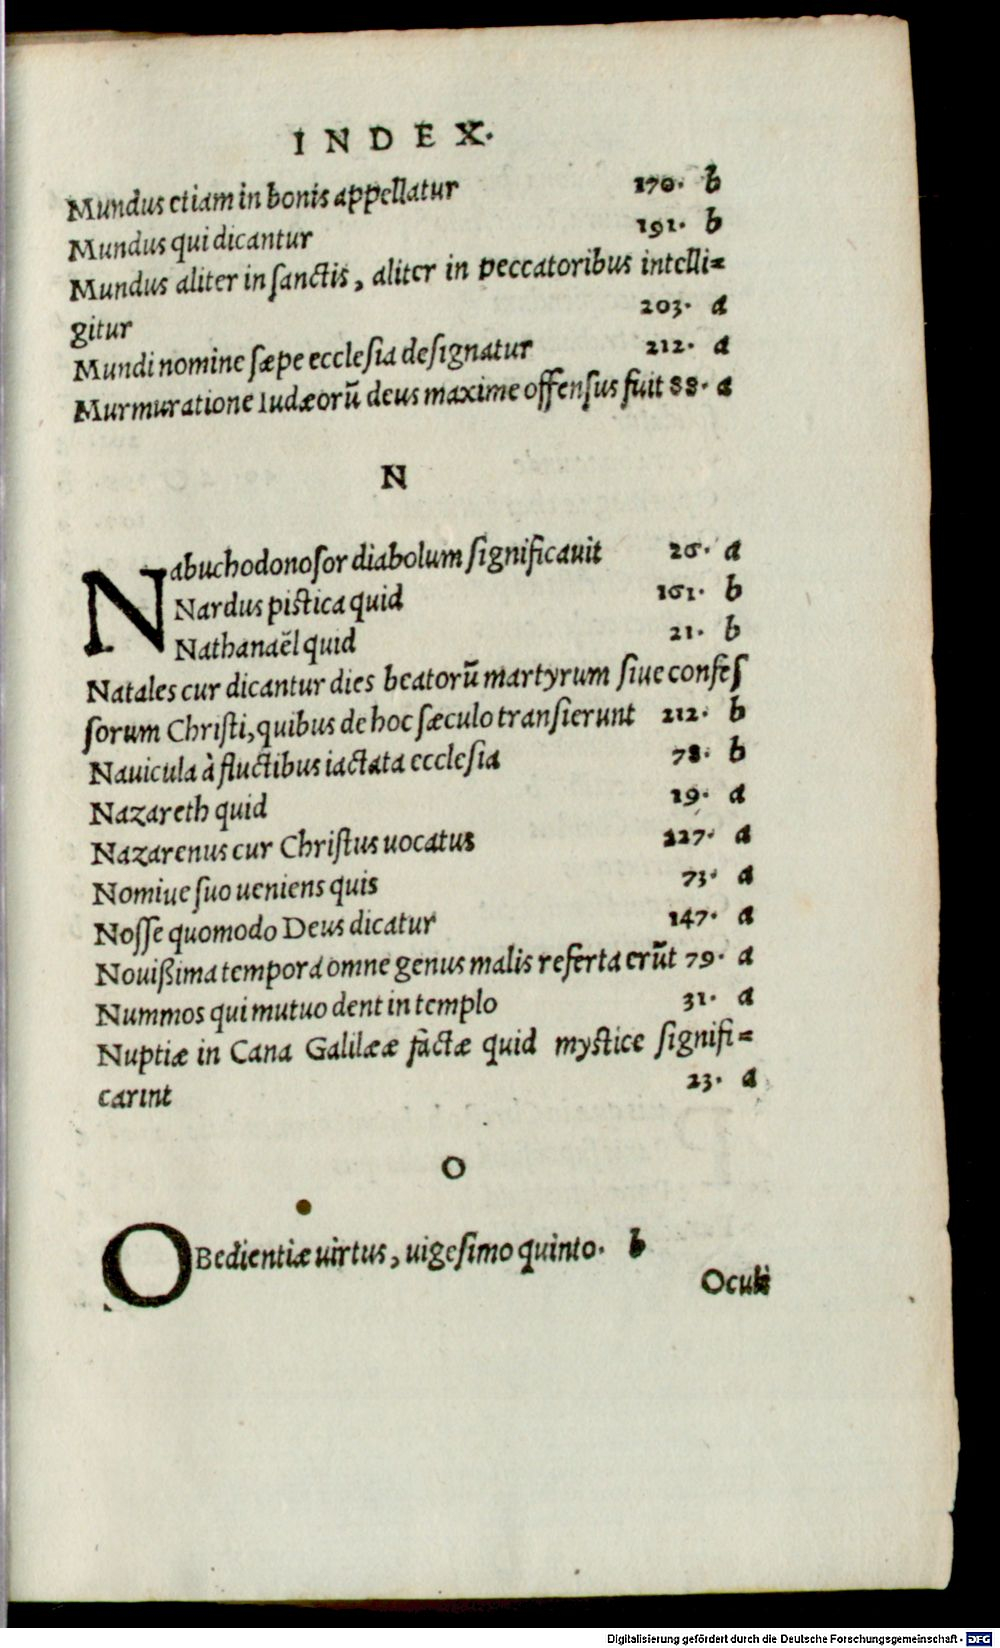 INDEX.
Mundus etiam in bonis appellatur 170. b
Mundus qui dicantur 191. b
Mundus aliter in ſanctis, aliter in peccatoribus intelli=
gitur 203. a
Mundi nomine ſæpe eccleſia deſignatur 212. a
Murmuratione Iudæorū deus maxime offenſus fuit 88. a
N
Nabuchodonoſor diabolum ſignificauit 26. a
Nardus piſtica quid 161. b
Nathanaël quid 21. b
Natales cur dicantur dies beatorū martyrum ſiue confeſ
ſorum Chriſti, quibus de hoc ſæculo tranſierunt 212. b
Nauicula à fluctibus iactata eccleſia 78. b
Nazareth quid 19. a
Nazarenus cur Chriſtus uocatus 227. a
Nomiue ſuo ueniens quis 73. a
Noſſe quomodo Deus dicatur 147. a
Nouißima tempora omne genus malis referta erūt 79. a
Nummos qui mutuo dent in templo 31. a
Nuptiæ in Cana Galilææ factæ quid myſtice ſignifi=
carint 23. a
O
OBedientiæ uirtus, uigeſimo quinto. b
Oculi
Digitalisierung gefördert durch die Deutsche Forschungsgemeinschaft - DFG